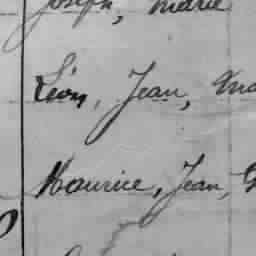 Joseph, Marie
Léon, Jean,
Maurice, Jean,